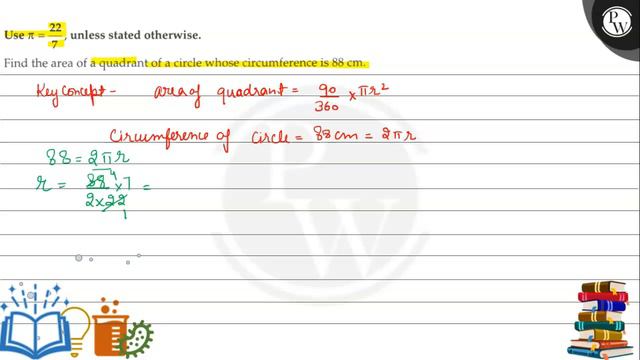 PW
Use π = 22/7, unless stated otherwise.
Find the area of a quadrant of a circle whose circumference is 88 cm.
Key concept - area of quadrant = 90/360 × πr²
Circumference of circle = 88 cm = 2πr
88 = 2πr
r = 88 4 × 7 / 2 × 22 1 =